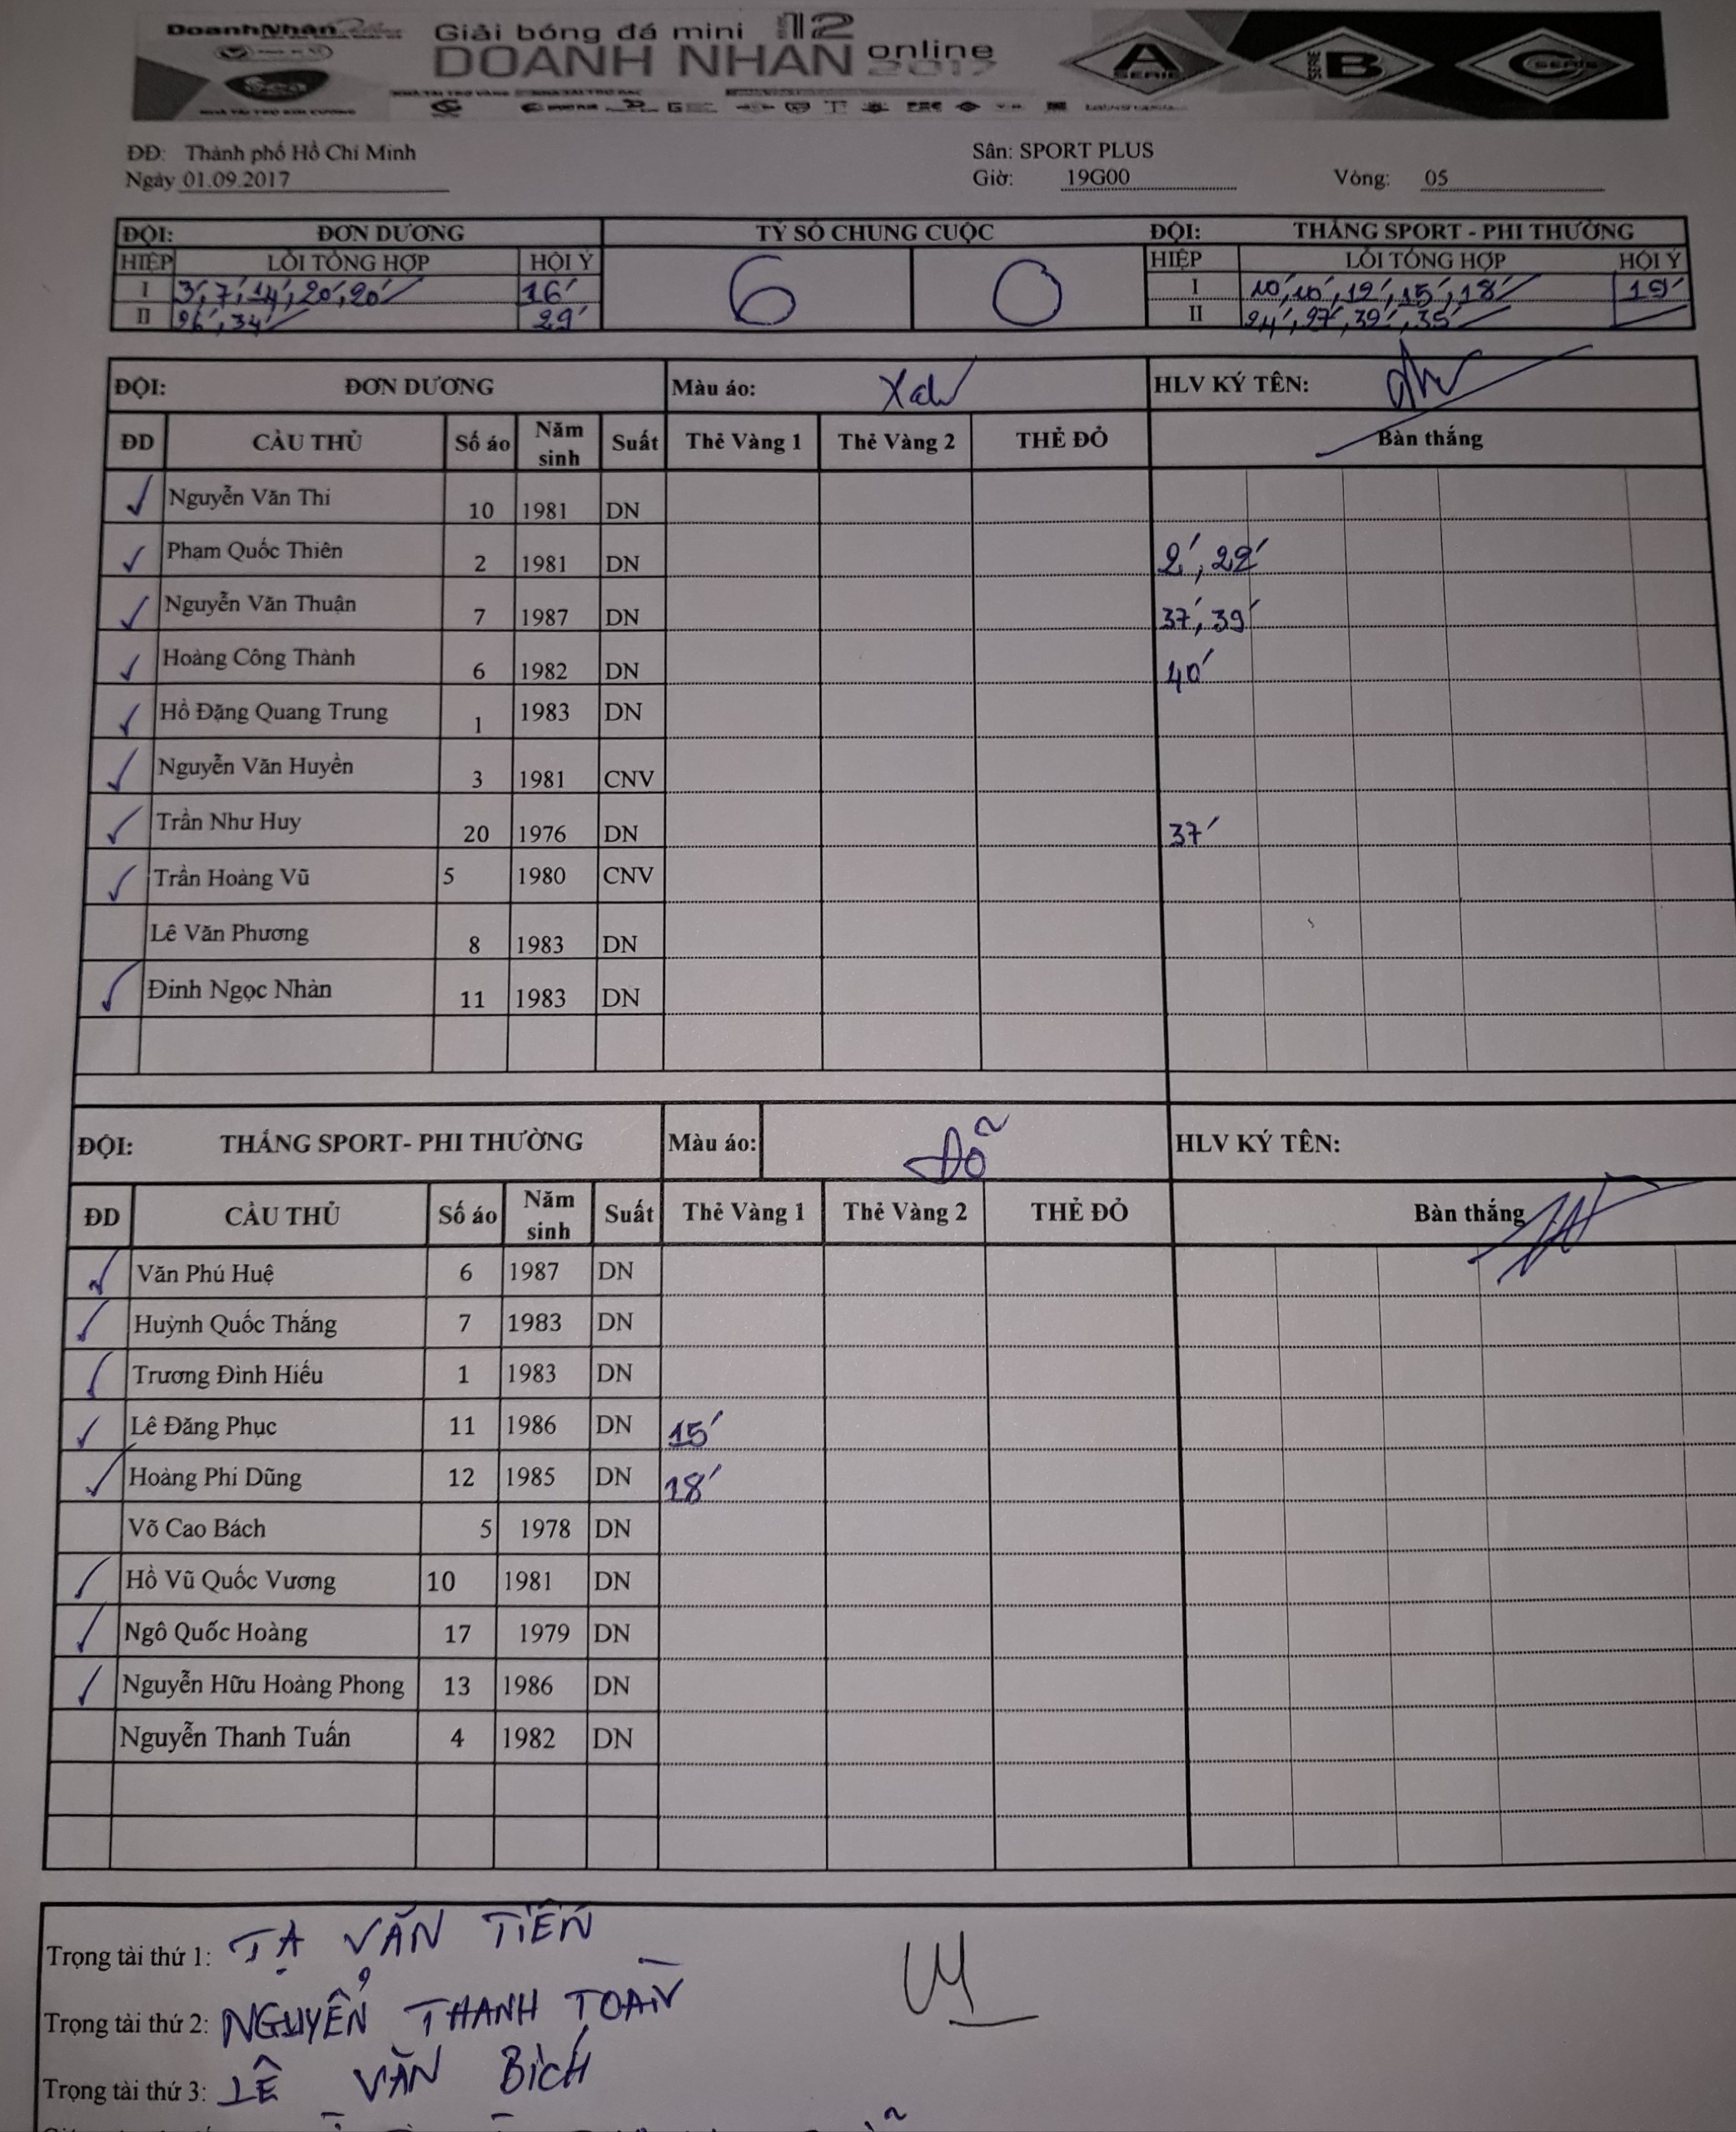 DoanhNhân
Giải bóng đá mini 12
DOANH NHÂN online 2017
A SERIE
SERIE B
C SERIE
ĐĐ: Thành phố Hồ Chí Minh Sân: SPORT PLUS
Ngày 01.09.2017 Giờ: 19G00 Vòng: 05
ĐỘI: ĐƠN DƯƠNG TỶ SỐ CHUNG CUỘC ĐỘI: THẮNG SPORT - PHI THƯỜNG
HIỆP LỖI TỔNG HỢP HỘI Ý 6 0 HIỆP LỖI TỔNG HỢP HỘI Ý
I 3', 7', 14', 20', 20' 16' I 10', 10', 12', 15', 18' 19'
II 26', 34' 29' II 24', 27', 32', 35'
ĐỘI: ĐƠN DƯƠNG Màu áo: Xanh HLV KÝ TÊN:
ĐD CẦU THỦ Số áo Năm sinh Suất Thẻ Vàng 1 Thẻ Vàng 2 THẺ ĐỎ Bàn thắng
✓ Nguyễn Văn Thi 10 1981 DN
✓ Phạm Quốc Thiên 2 1981 DN 2', 22'
✓ Nguyễn Văn Thuận 7 1987 DN 37', 39'
✓ Hoàng Công Thành 6 1982 DN 40'
✓ Hồ Đặng Quang Trung 1 1983 DN
✓ Nguyễn Văn Huyền 3 1981 CNV
✓ Trần Như Huy 20 1976 DN 37'
✓ Trần Hoàng Vũ 5 1980 CNV
Lê Văn Phương 8 1983 DN
✓ Đinh Ngọc Nhàn 11 1983 DN
ĐỘI: THẮNG SPORT- PHI THƯỜNG Màu áo: Đỏ HLV KÝ TÊN:
ĐD CẦU THỦ Số áo Năm sinh Suất Thẻ Vàng 1 Thẻ Vàng 2 THẺ ĐỎ Bàn thắng
✓ Văn Phú Huệ 6 1987 DN
✓ Huỳnh Quốc Thắng 7 1983 DN
✓ Trương Đình Hiếu 1 1983 DN
✓ Lê Đăng Phục 11 1986 DN 15'
✓ Hoàng Phi Dũng 12 1985 DN 18'
Võ Cao Bách 5 1978 DN
✓ Hồ Vũ Quốc Vương 10 1981 DN
✓ Ngô Quốc Hoàng 17 1979 DN
✓ Nguyễn Hữu Hoàng Phong 13 1986 DN
Nguyễn Thanh Tuấn 4 1982 DN
Trọng tài thứ 1: TẠ VĂN TIẾN
Trọng tài thứ 2: NGUYỂN THANH TOÀN
Trọng tài thứ 3: LÊ VĂN BÍCH